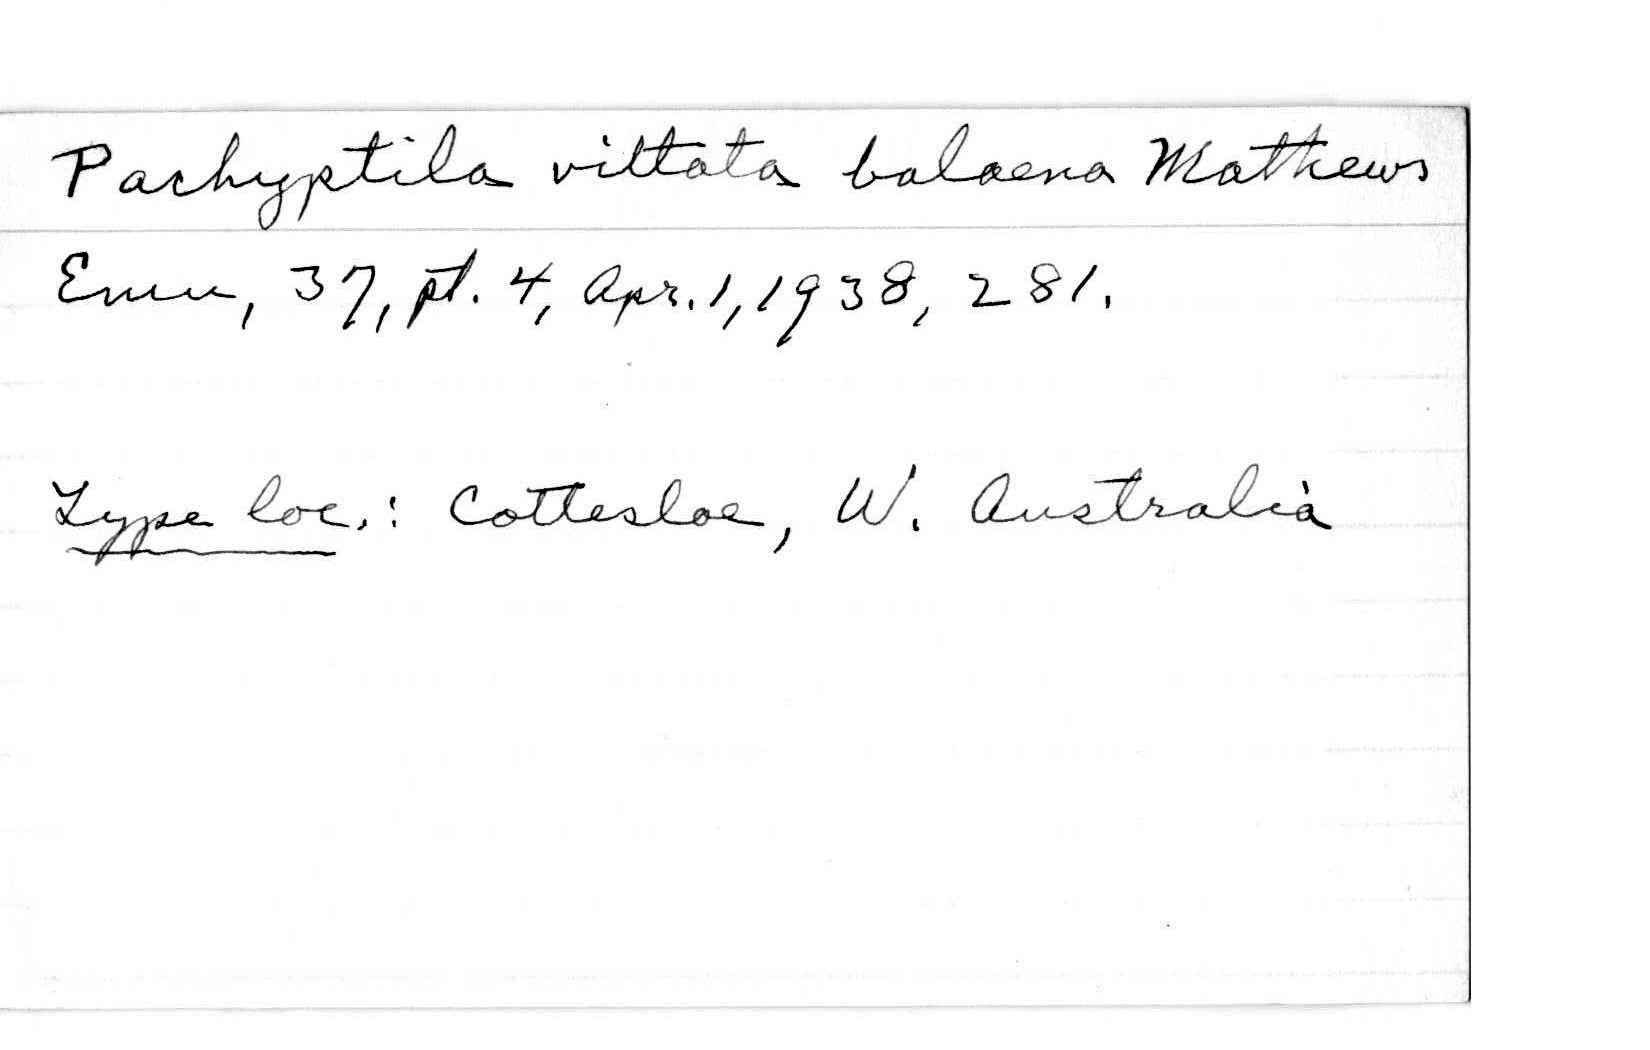 Pachyptila vittata balaena Mathews
Emu, 37, pt. 4, Apr. 1, 1938, 281.
Type loc.: Cottesloe, W. Australia